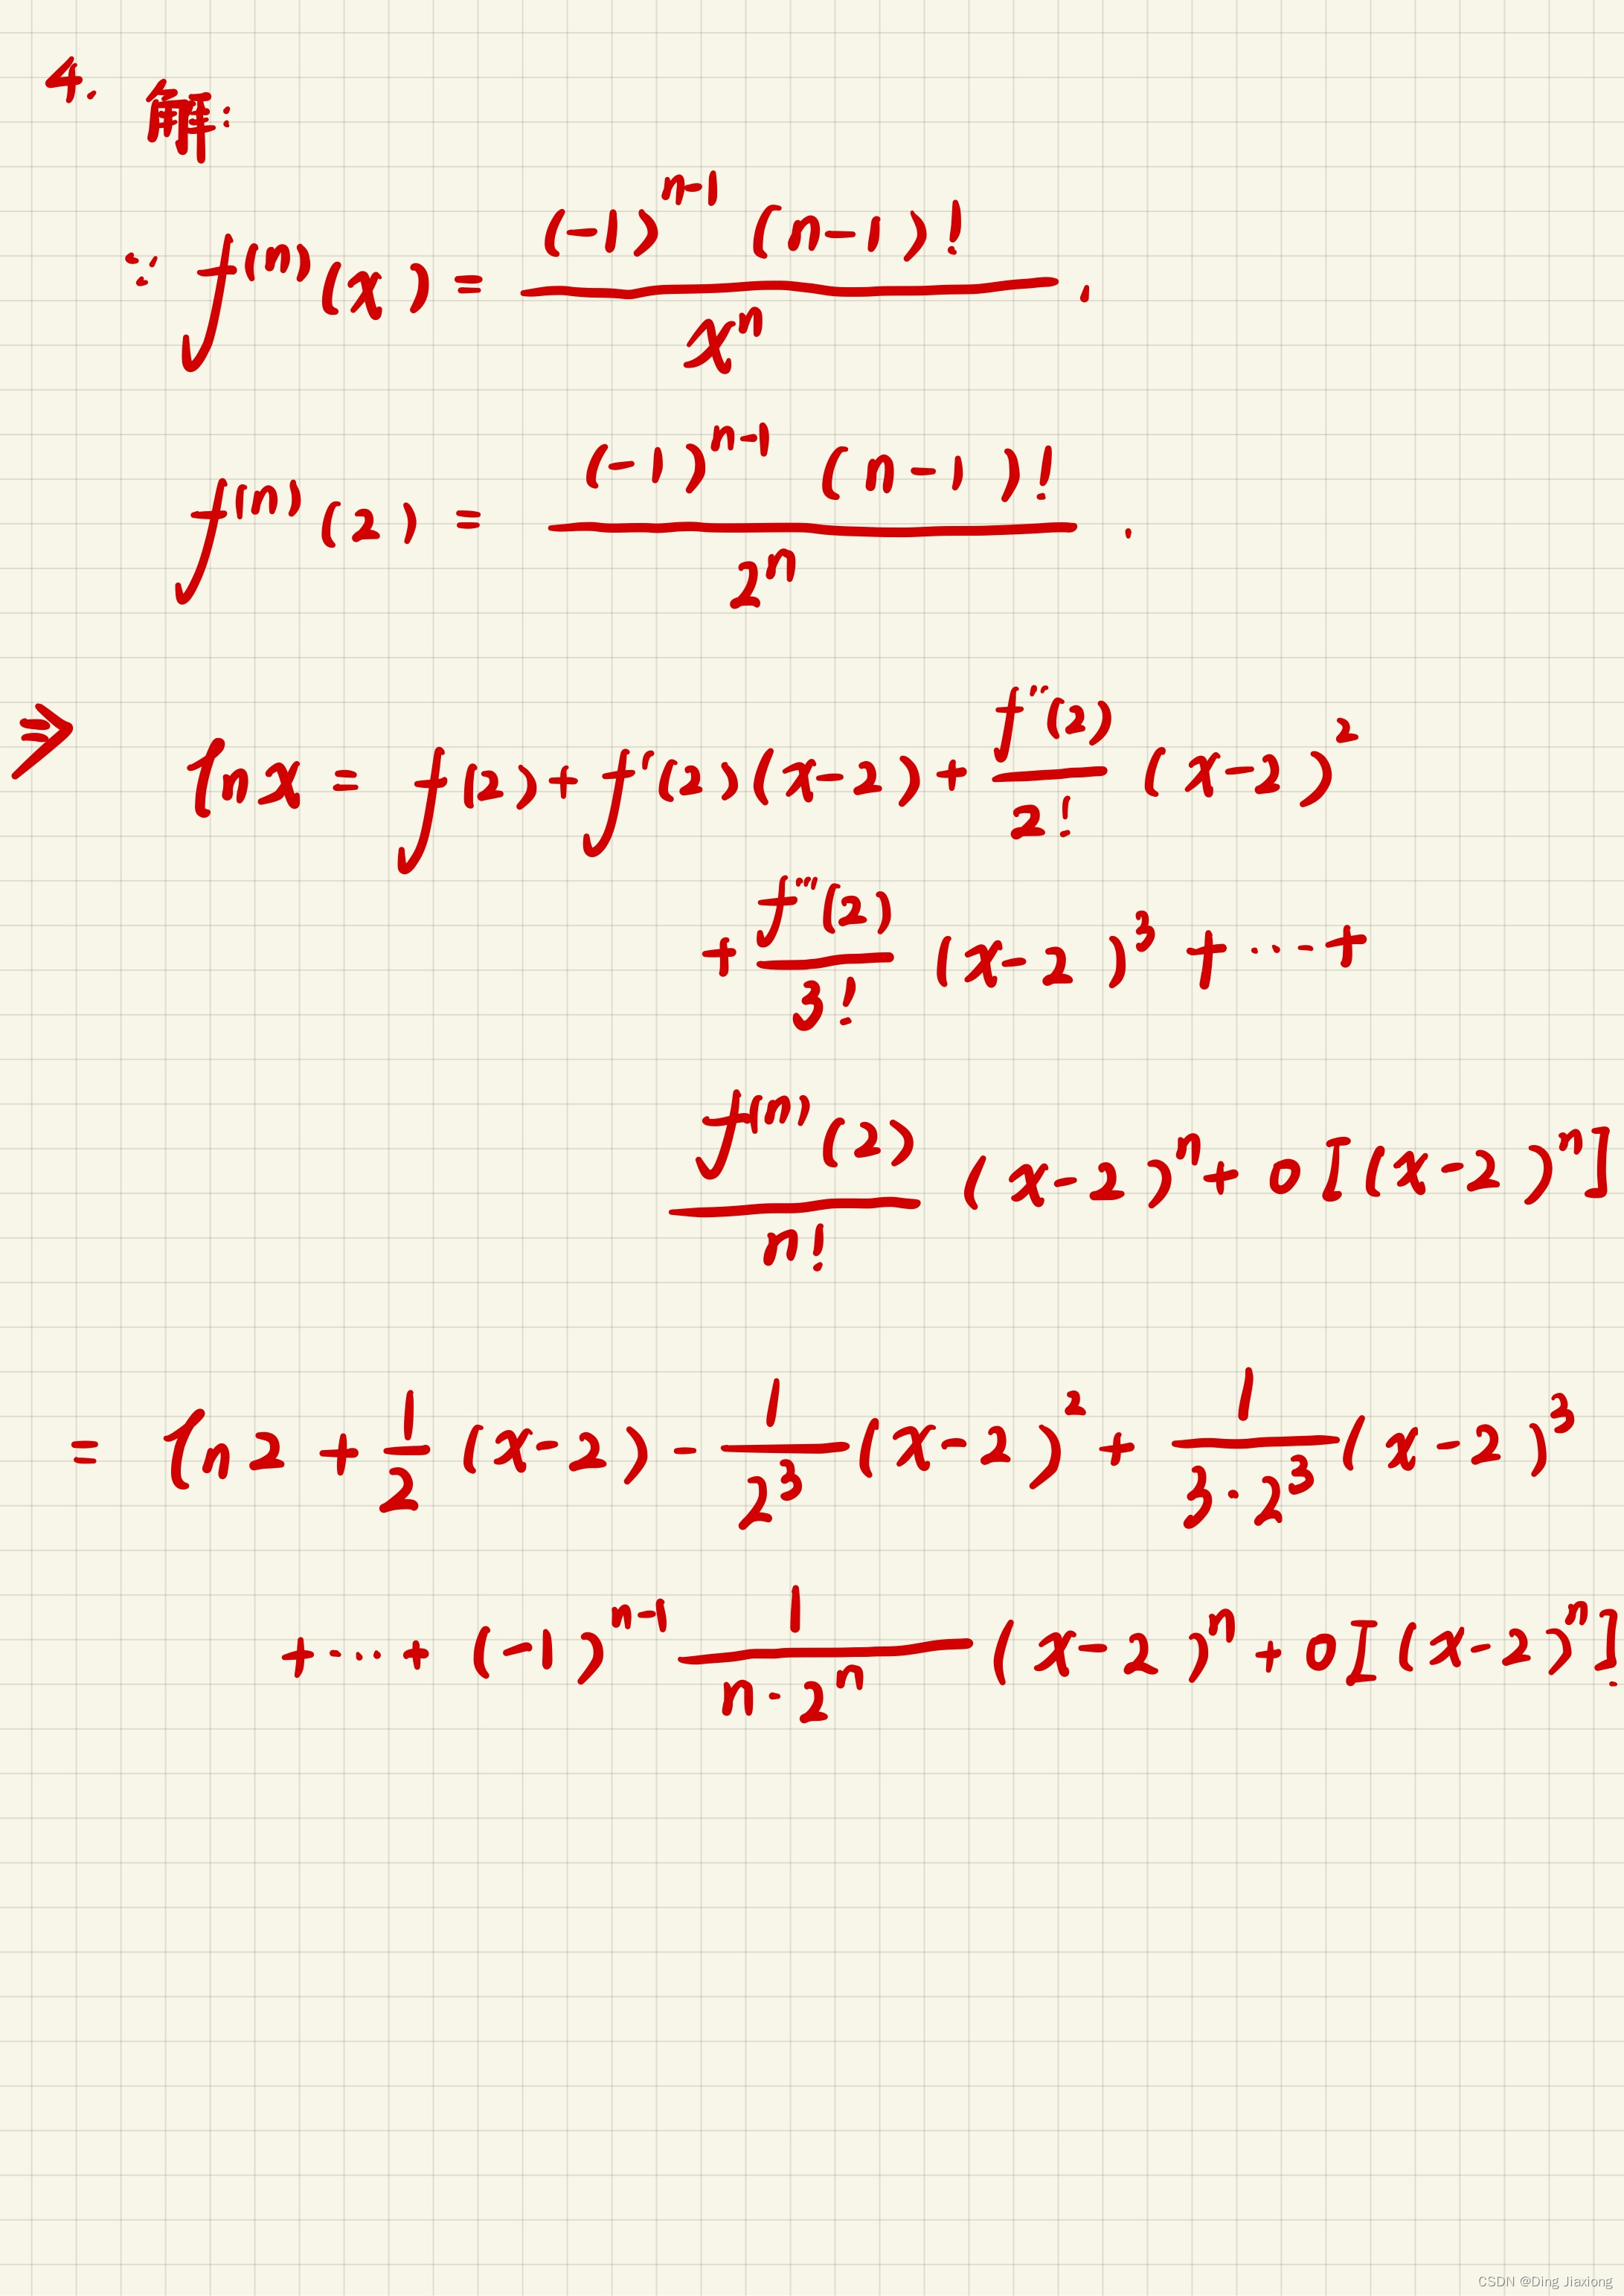 4. 解:
∵ f^{(n)}(x) = \frac{(-1)^{n-1} (n-1)!}{x^n}.
f^{(n)}(2) = \frac{(-1)^{n-1} (n-1)!}{2^n}.
⇒ ln x = f(2) + f'(2)(x-2) + \frac{f''(2)}{2!} (x-2)^2
+ \frac{f'''(2)}{3!} (x-2)^3 + ⋯ +
\frac{f^{(n)}(2)}{n!} (x-2)^n + o[(x-2)^n]
= ln 2 + \frac{1}{2} (x-2) - \frac{1}{2^3} (x-2)^2 + \frac{1}{3·2^3} (x-2)^3
+ ⋯ + (-1)^{n-1} \frac{1}{n·2^n} (x-2)^n + o[(x-2)^n].
CSDN @Ding Jiaxiong